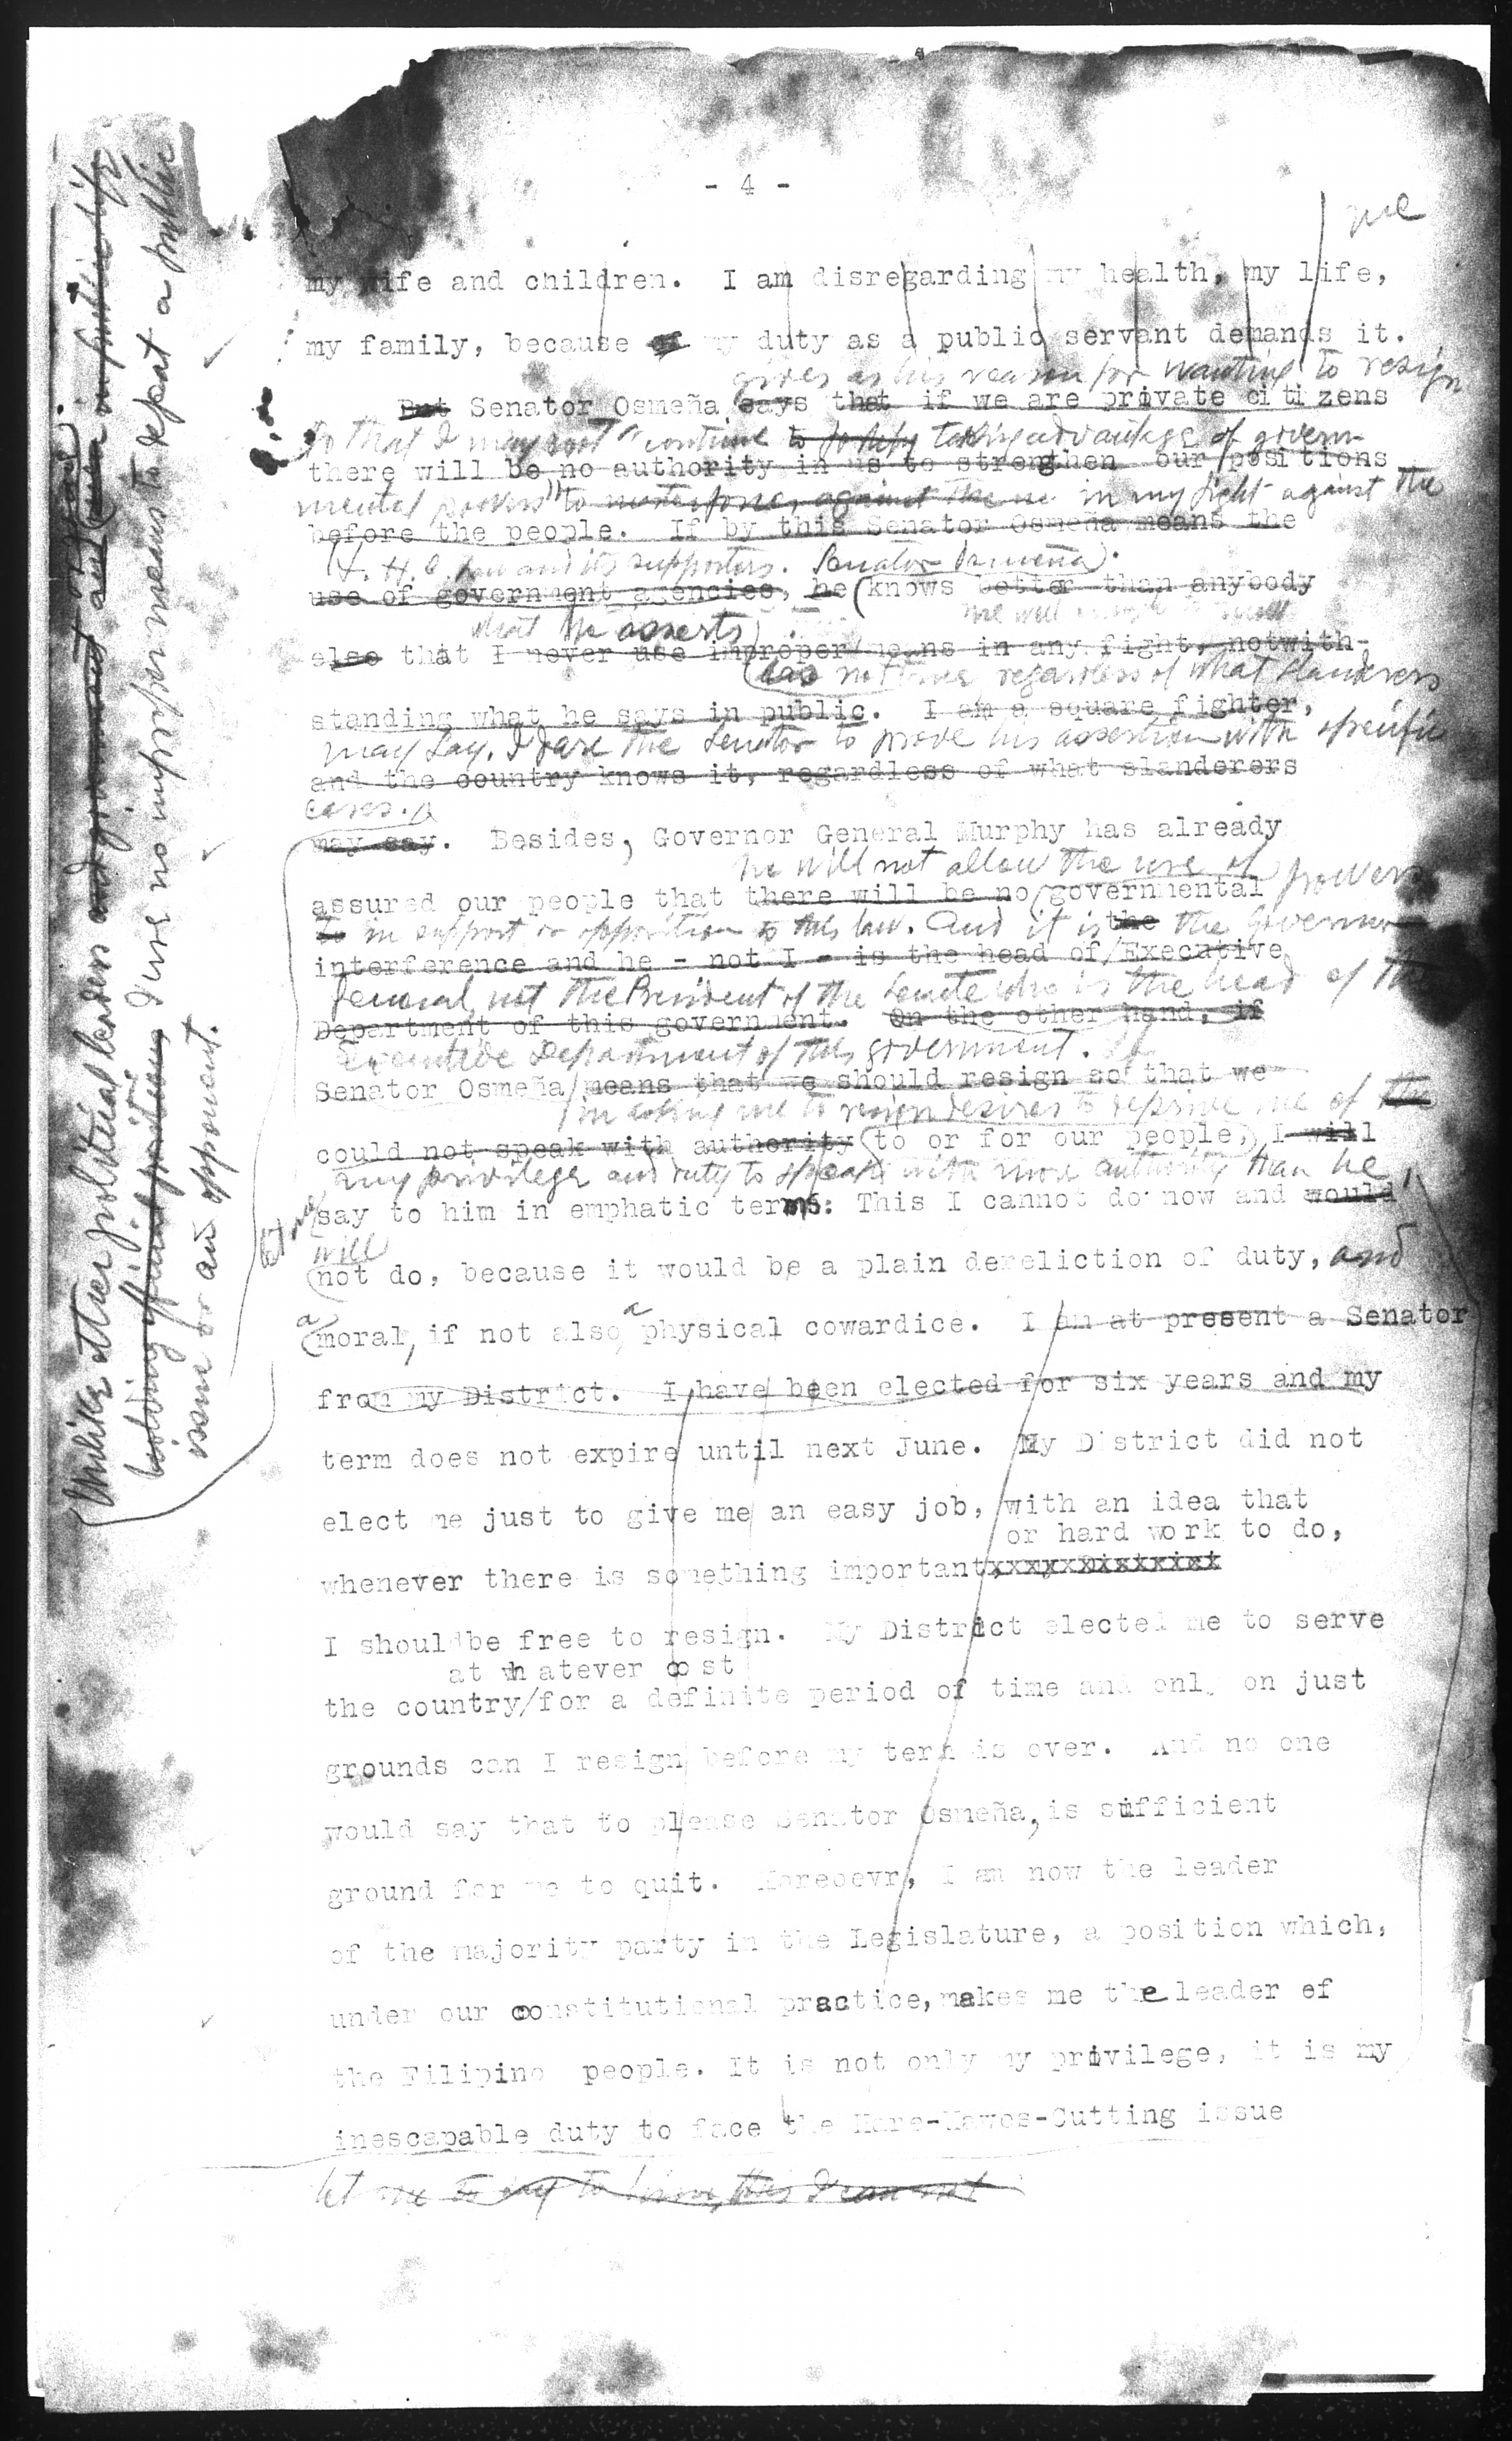 - 4 -
me
my wife and children. I am disregarding my health, my life,
my family, because of my duty as a public servant demands it.
gives as his reason for wanting to resign
But Senator Osmeña says that if we are private citizens
so that I may not "continue to taking advantage of govern-
there will be no authority in us to strengthen our positions
mental powers" to against the in my fight against the
before the people. If by this Senator Osmeña means the
H. H. C. law and its supporters. Senator Osmeña
use of government agencies, he knows better than anybody
what he asserts
else that I never use improper means in any fight, notwith-
has not time regardless of what slanderers
standing what he says in public. I am a square fighter,
may say. I dare the Senator to prove his assertion with specific
and the country knows it, regardless of what slanderers
cases.
may say. Besides, Governor General Murphy has already
he will not allow the use of powers
assured our people that there will be no governmental
to in support or opposition to this law. And it is the the Governor
interference and he - not I - is the head of/Executive
General, not the President of the Senate who is the head of the
Department of this government. On the other hand, if
Executive Department of this government. If
Senator Osmeña/means that we should resign so that we
in asking me to resign desires to deprive me of the
could not speak with authority to or for our people, I will
any privilege and duty to speak with more authority than he,
say to him in emphatic terms: This I cannot do now and would
will
not do, because it would be a plain dereliction of duty, and
a
moral, if not also a physical cowardice. I am at present a Senator
from my District. I have been elected for six years and my
term does not expire until next June. My District did not
elect me just to give me an easy job, with an idea that
or hard work to do,
whenever there is something important,xxxyxDistrict
I should be free to resign. My District elected me to serve
at whatever cost
the country/for a definite period of time and only on just
grounds can I resign before my term is over. And no one
would say that to please Senator Osmeña, is sufficient
ground for me to quit. Moreoevr, I am now the leader
of the majority party in the Legislature, a position which,
under our constitutional practice, makes me the leader of
the Filipino people. It is not only my privilege, it is my
inescapable duty to face the Hare-Hawes-Cutting issue
let me to say to him, this I can not
Unlike other political leaders and government and even in public life
holding official positions, I use no improper means to defeat a public
issue or an opponent.